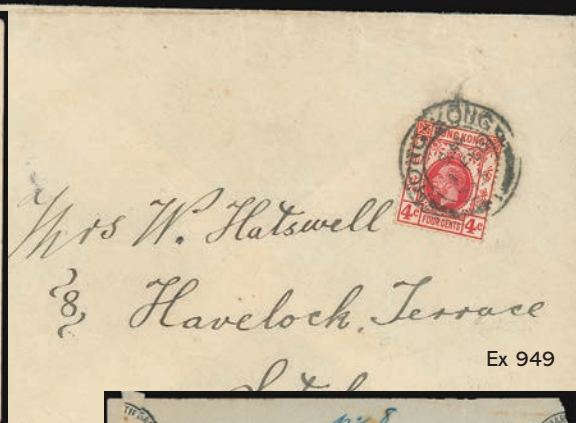 HONG KONG
HONG KONG
4c FOUR CENTS 4c
Mrs W. Hatswell
8, Havelock, Terrace
Ex 949
No 8